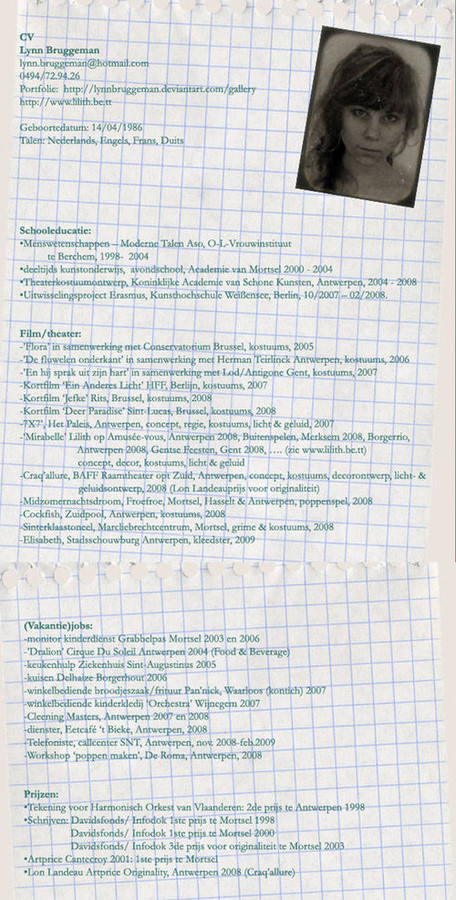 CV
Lynn Bruggeman
lynn.bruggeman@hotmail.com
0494/72.94.26
Portfolie: http://lynnbruggeman.deviantart.com/gallery
http://www.lilith.be.tt
Geboortedatum: 14/04/1986
Talen: Nederlands, Engels, Frans, Duits
Schooleducatie:
•Menswetenschappen – Moderne Talen Aso, O-L-Vrouwinstituut
te Berchem, 1998- 2004
•deeltijds kunstonderwijs, avondschool, Academie van Mortsel 2000 - 2004
•Theaterkostuumontwerp, Koninklijke Academie van Schone Kunsten, Antwerpen, 2004 - 2008
•Uitwisselingsproject Erasmus, Kunsthochschule Weißensee, Berlin, 10/2007 – 02/2008.
Film/theater:
-'Flora' in samenwerking met Conservatorium Brussel, kostuums, 2005
-'De fluwelen onderkant' in samenwerking met Herman Teirlinck Antwerpen, kostuums, 2006
-'En hij sprak uit zijn hart' in samenwerking met Lod/Antigone Gent, kostuums, 2007
-Kortfilm 'Ein Anderes Licht' HFF, Berlijn, kostuums, 2007
-Kortfilm 'Jefke' Rits, Brussel, kostuums, 2008
-Kortfilm 'Deer Paradise' Sint-Lucas, Brussel, kostuums, 2008
-'7X7', Het Paleis, Antwerpen, concept, regie, kostuums, licht & geluid, 2007
-'Mirabelle' Lilith op Amusée-vous, Antwerpen 2008, Buitenspelen, Merksem 2008, Borgerrio,
Antwerpen 2008, Gentse Feesten, Gent 2008, .... (zie www.lilith.be.tt)
concept, decor, kostuums, licht & geluid
-Craq'allure, BAFF Raamtheater opt Zuid, Antwerpen, concept, kostuums, decorontwerp, licht- &
geluidsontwerp, 2008 (Lon Landeauprijs voor originaliteit)
-Midzomernachtsdroom, Froefroe, Mortsel, Hasselt & Antwerpen, poppenspel, 2008
-Cockfish, Zuidpool, Antwerpen, kostuums, 2008
-Sinterklaastoneel, Marcliebrechtcentrum, Mortsel, grime & kostuums, 2008
-Elisabeth, Stadsschouwburg Antwerpen, kleedster, 2009
(Vakantie)jobs:
-monitor kinderdienst Grabbelpas Mortsel 2003 en 2006
-'Dralion' Cirque Du Soleil Antwerpen 2004 (Food & Beverage)
-keukenhulp Ziekenhuis Sint-Augustinus 2005
-kuisen Delhaize Borgerhout 2006
-winkelbediende broodjeszaak/frituur Pan'nick, Waarloos (kontich) 2007
-winkelbediende kinderkledij 'Orchestra' Wijnegem 2007
-Cleening Masters, Antwerpen 2007 en 2008
-dienster, Eetcafé 't Bieke, Antwerpen, 2008
-Telefoniste, callcenter SNT, Antwerpen, nov. 2008-feb.2009
-Workshop 'poppen maken', De Roma, Antwerpen, 2008
Prijzen:
•Tekening voor Harmonisch Orkest van Vlaanderen: 2de prijs te Antwerpen 1998
•Schrijven: Davidsfonds/ Infodok 1ste prijs te Mortsel 1998
Davidsfonds/ Infodok 1ste prijs te Mortsel 2000
Davidsfonds/ Infodok 3de prijs voor originaliteit te Mortsel 2003
•Artprice Cantecroy 2001: 1ste prijs te Mortsel
•Lon Landau Artprice Originality, Antwerpen 2008 (Craq'allure)